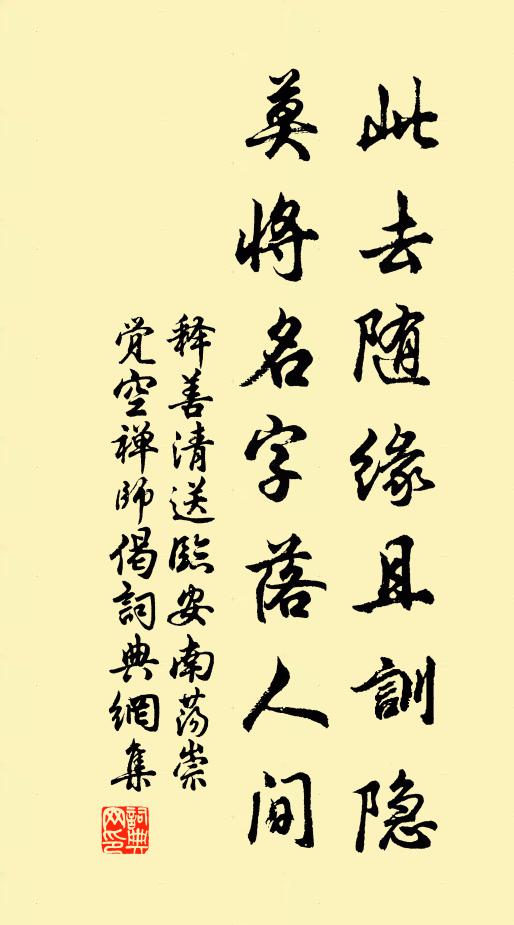 此去随缘且訓隐
莫将名字落人间
释善清送臨安南荡崇
觉空禅师偈詞典網集
詞典网印